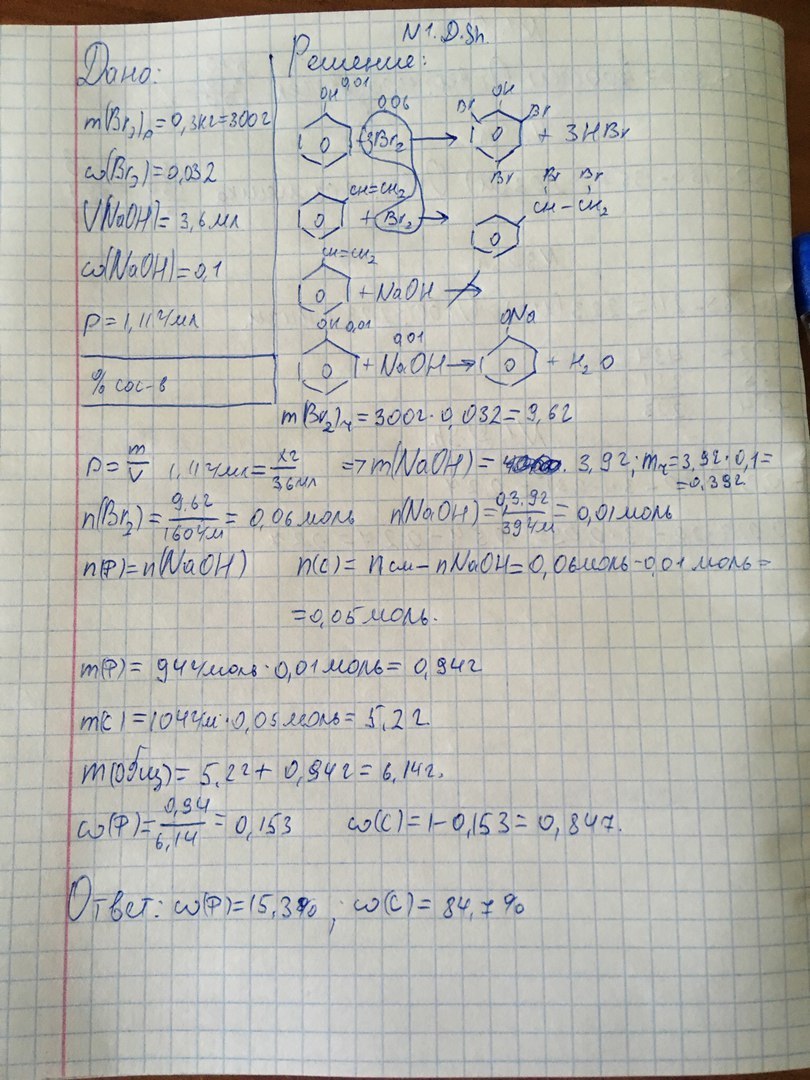 N1. D.Sh.
Дано:
m(Br₂)р=0,3кг=300г
ω(Br₂)=0,032
V(NaOH)=3,6мл
ω(NaOH)=0,1
ρ=1,11г/мл
% сос-в
Решение:
OH 0,01 0,06 OH
Br Br
+3Br₂ → + 3HBr
Br
CH=CH₂ Br Br
+ Br₂ → CH-CH₂
CH=CH₂
+ NaOH
OH 0,01 0,01 ONa
+ NaOH → + H₂O
m(Br₂)ч=300г·0,032=9,6г
ρ=m/V 1,11г/мл=xг/3,6мл => m(NaOH)= 3,9г; mч=3,9г·0,1=
=0,39г
n(Br₂)=9,6г/160г/м=0,06моль n(NaOH)=0,3.9г/39г/м=0,01моль
n(Ф)=n(NaOH) n(С)=nсм-nNaOH=0,06моль-0,01моль=
=0,05моль.
m(Ф)=94г/моль·0,01моль=0,94г
m(С)=104г/м·0,05моль=5,2г.
m(общ)=5,2г+0,94г=6,14г.
ω(Ф)=0,94/6,14=0,153 ω(С)=1-0,153=0,847.
Ответ: ω(Ф)=15,3%; ω(С)=84,7%